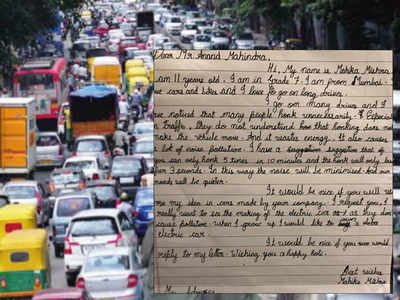 Dear Mr. Anand Mahindra,
Hi, My name is Mahika Mishra.
am 11 years old. I am in Grade 7. I am from Mumbai.
love cars and bikes and I love to go on long drives.
I go on many drives and I
noticed that many people honk unnecessarily. Especial
in traffic, they do not understand how that honking does not
make the vehicle move. And it wastes energy. It also causes
lot of noise pollution. I have a suggestion that
you can only honk 5 times in 10 minutes and the honk will only be
for 3 seconds. In this way the noise will be minimised and our
roads will be quieter.
It would be nice if you will
my idea in cars made by your company. I request you, I
really want to see the making of the electric car as they don't
cause pollution. When I grow up I would like to
electric car.
It would be nice if you would
reply to my letter. Wishing you a happy
Best wishes
Mahika Mishra